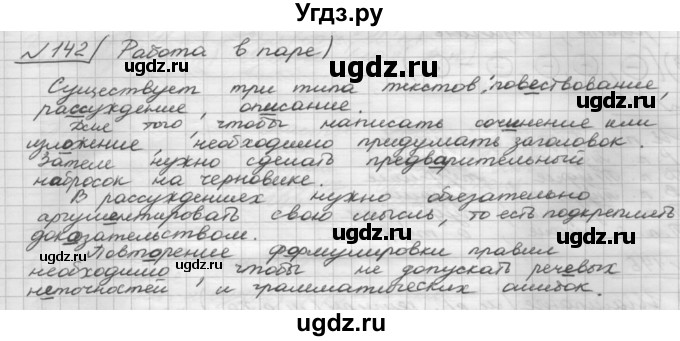 Угдз.ру
№142 (Работа в паре)
Существует три типа текстов: повествование,
рассуждение, описание.
Для того, чтобы написать сочинение или
изложение, необходимо придумать заголовок.
Затем нужно сделать предварительный
набросок на черновике.
В рассуждениях нужно обязательно
аргументировать свою мысль, то есть подкреплять
доказательством.
Повторение формулировки правил
необходимо, чтобы не допускать речевых
неточностей и грамматических ошибок.
ugdz.ru
ugdz.ru
ugdz.ru
ugdz.ru
ugdz.ru
ugdz.ru
ugdz.ru
ugdz.ru
ugdz.ru
ugdz.ru